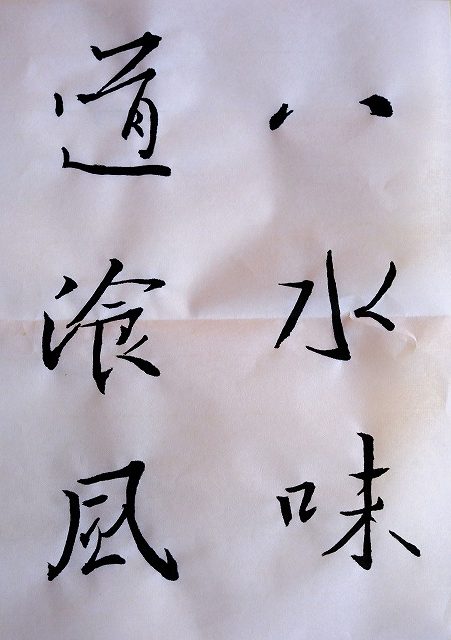 八水味
道湌風